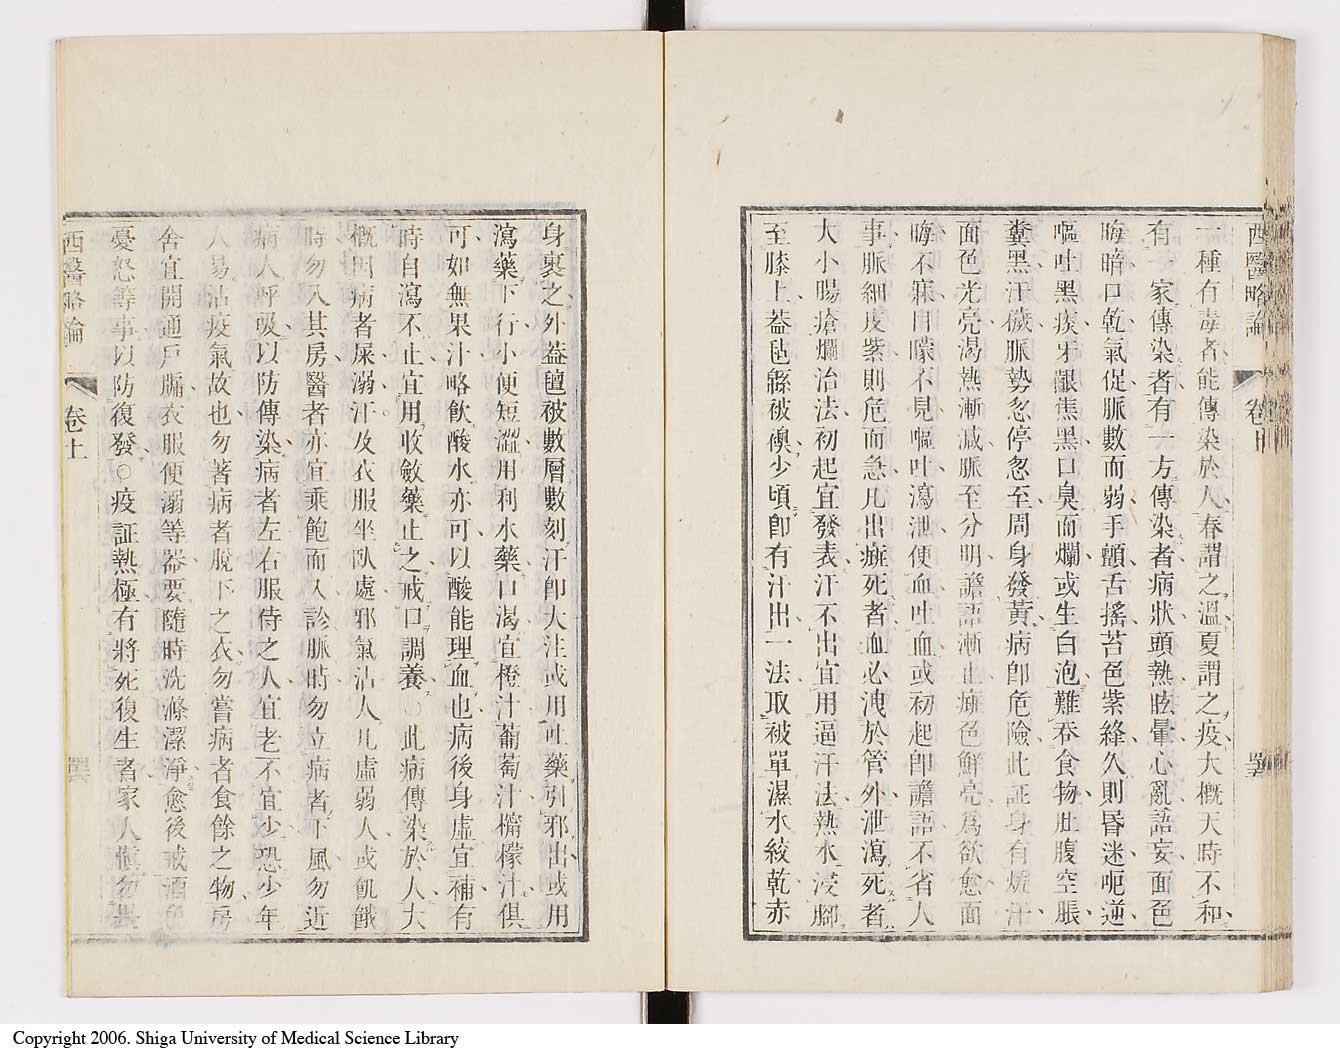 西醫略論
卷上
一種有毒者能傳染於人春謂之溫夏謂之疫大概天時不和
有一家傳染者有一方傳染者病狀頭熱眩暈心亂語妄面色
晦暗口乾氣促脈數而弱手顫舌搖苔色紫絳久則昏迷呃逆
嘔吐黑痰牙齦焦黑口臭而爛或生白泡難吞食物肚腹空脹
糞黑汗穢脈勢忽停忽至周身發黃病卽危險此証身有熱汗
面色光亮渴熱漸減脈至分明譫語漸止癍色鮮亮爲欲愈面
晦不寐目矇不見嘔吐瀉泄便血吐血或初起卽譫語不省人
事脈細皮紫則危而急凡出癍死者血必洩於管外泄瀉死者
大小腸瘡爛治法初起宜發表汗不出宜用逼汗法熱水浸腳
至膝上葢毡緜被襖少頃卽有汁出一法取被單濕水絞乾赤
身裹之外葢氊被數層數刻汗卽大注或用吐藥引邪出或用
瀉藥下行小便短澀用利水藥口渴宜橙汁葡萄汁檸檬汁俱
可如無果汁略飲酸水亦可以酸能理血也病後身虛宜補有
時自瀉不止宜用收斂藥止之戒口調養○此病傳染於人大
概因病者屎溺汗及衣服坐臥處邪氣沾人凡虛弱人或飢餓
時勿入其房醫者亦宜乘飽而入診脈時勿立病者下風勿近
病人呼吸以防傳染病者左右服侍之人宜老不宜少恐少年
人易沾疫氣故也勿著病者脫下之衣勿嘗病者食餘之物房
舍宜開通戶牖衣服便溺等器要隨時洗滌潔淨愈後戒酒色
憂怒等事以防復發○疫証熱極有將死復生者家人愼勿畏
西醫略論
卷上